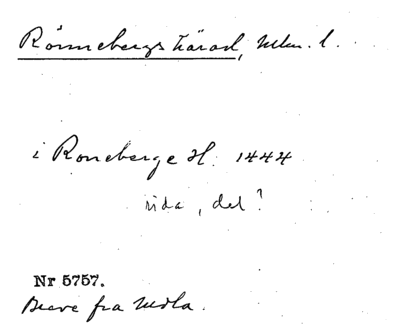 Rönnebergs härad, Mlm. l.
i Roneberge H. 1444
sida, del?
Nr 5757.
Breve fra Mdla.